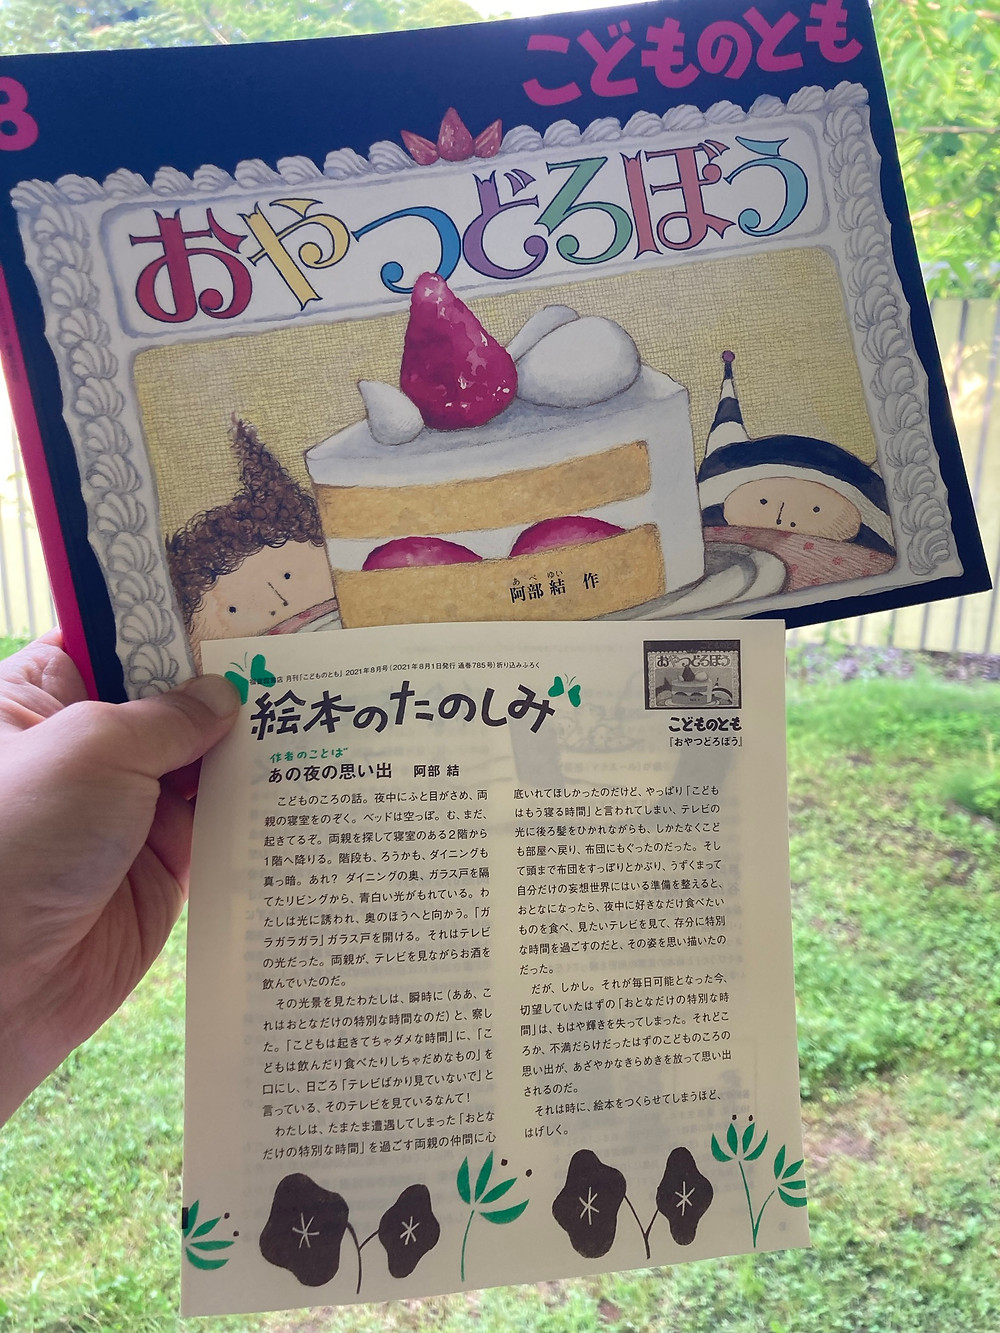 8
こどものとも
おやつどろぼう
あべ ゆい
阿部 結 作
月刊「こどものとも」2021年8月号(2021年8月1日発行 通巻785号)折り込みふろく
絵本のたのしみ
おやつどろぼう
こどものとも
『おやつどろぼう』
作者のことば
あの夜の思い出 阿部 結
こどものころの話。夜中にふと目がさめ、両
親の寝室をのぞく。ベッドは空っぽ。む、まだ、
起きてるぞ。両親を探して寝室のある2階から
1階へ降りる。階段も、ろうかも、ダイニングも
真っ暗。あれ? ダイニングの奥、ガラス戸を隔
てたリビングから、青白い光がもれている。わ
たしは光に誘われ、奥のほうへと向かう。「ガ
ラガラガラ」ガラス戸を開ける。それはテレビ
の光だった。両親が、テレビを見ながらお酒を
飲んでいたのだ。
その光景を見たわたしは、瞬時に(ああ、こ
れはおとなだけの特別な時間なのだ)と、察し
た。「こどもは起きてちゃダメな時間」に、「こ
どもは飲んだり食べたりしちゃだめなもの」を
口にし、日ごろ「テレビばかり見ていないで」と
言っている、そのテレビを見ているなんて!
わたしは、たまたま遭遇してしまった「おとな
だけの特別な時間」を過ごす両親の仲間に心
底いれてほしかったのだけど、やっぱり「こども
はもう寝る時間」と言われてしまい、テレビの
光に後ろ髪をひかれながらも、しかたなくこど
も部屋へ戻り、布団にもぐったのだった。そし
て頭まで布団をすっぽりとかぶり、うずくまって
自分だけの妄想世界にはいる準備を整えると、
おとなになったら、夜中に好きなだけ食べたい
ものを食べ、見たいテレビを見て、存分に特別
な時間を過ごすのだと、その姿を思い描いたの
だった。
だが、しかし。それが毎日可能となった今、
切望していたはずの「おとなだけの特別な時
間」は、もはや輝きを失ってしまった。それどこ
ろか、不満だらけだったはずのこどものころの
思い出が、あざやかなきらめきを放って思い出
されるのだ。
それは時に、絵本をつくらせてしまうほど、
はげしく。